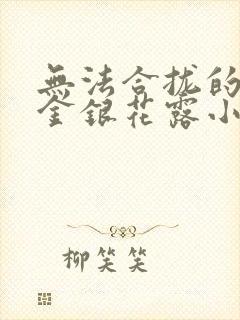 無法合拢的
金銀花露小
柳笑笑